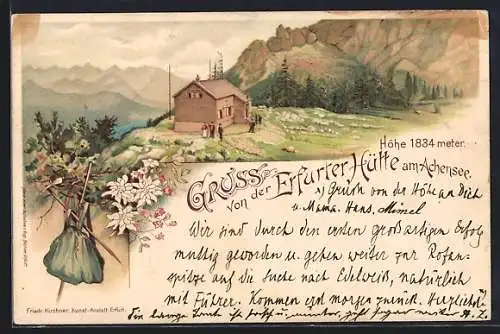 Höhe 1834 meter.
GRUSS von der Erfurter Hütte am Achensee.
Grüße von der Höhe an Dich
u. Mama. Hans. Mimel
Wir sind durch den ersten großartigen Erfolg
muttig geworden u. gehen weiter zur Rofan-
spitze auf die Suche nach Edelweiß, natürlich
mit Führer. Kommen erst morgen zurück. Herzlichst
Friedr. Kirchner, Kunst-Anstalt Erfurt.